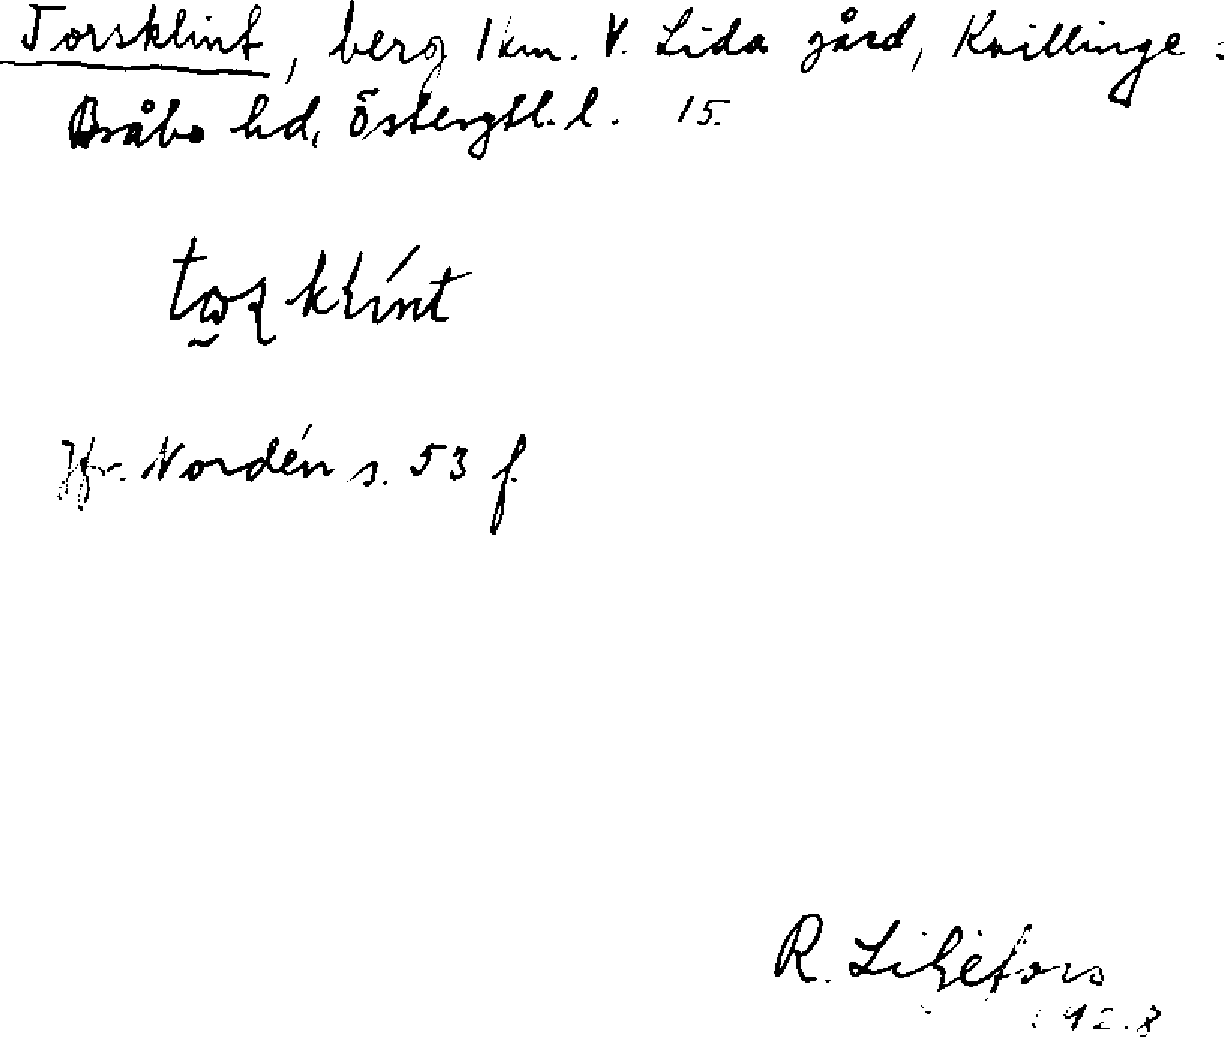 Torsklint, berg 1 km. V. Lida gård, Kvillinge s
Bråbo hd, Östergtl. l. 15.
Jfr. Nordén s. 53 f.
R. Liljefors
1928